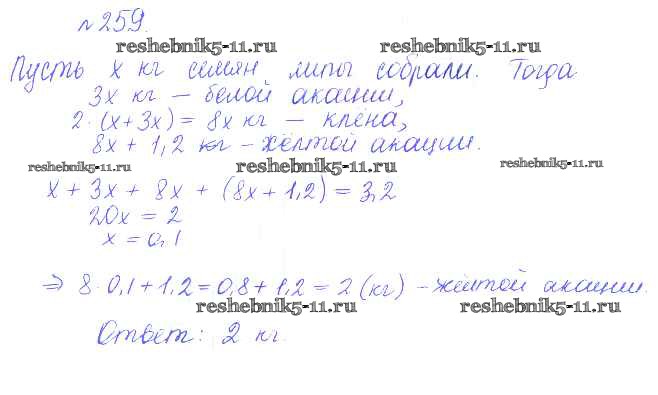 № 259.
reshebnik5-11.ru reshebnik5-11.ru
Пусть х кг семян липы собрали. Тогда
3х кг – белой акации,
2·(х+3х) = 8х кг – клёна,
8х + 1,2 кг – жёлтой акации.
reshebnik5-11.ru reshebnik5-11.ru reshebnik5-11.ru
х + 3х + 8х + (8х + 1,2) = 3,2
20х = 2
х = 0,1
⇒ 8·0,1 + 1,2 = 0,8 + 1,2 = 2 (кг) – жёлтой акации.
reshebnik5-11.ru reshebnik5-11.ru
Ответ: 2 кг.